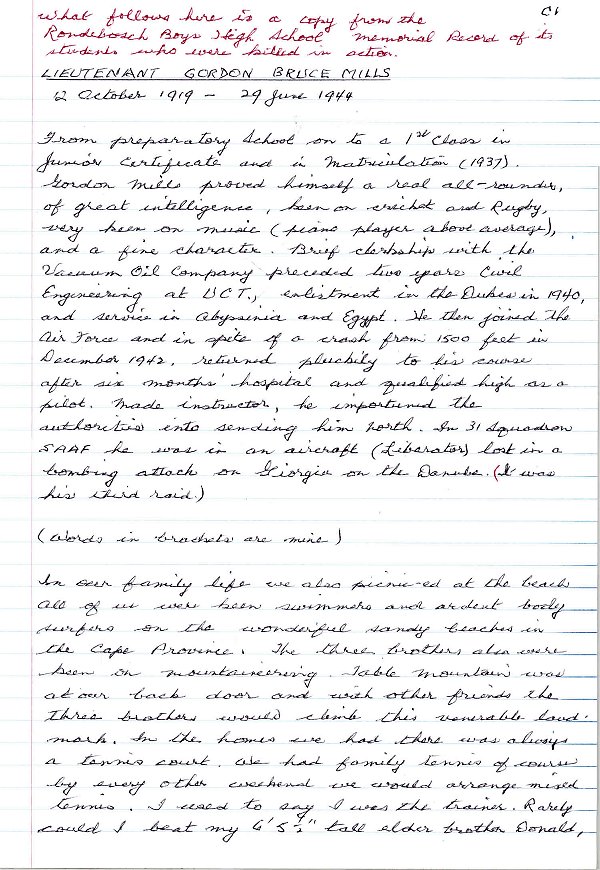 C1
What follows here is a copy from the
Rondebosch Boys High School Memorial Record of its
students who were killed in action.
LIEUTENANT GORDON BRUCE MILLS
12 October 1919 - 29 June 1944
From preparatory School on to a 1st Class in
Junior Certificate and in Matriculation (1937).
Gordon Mills proved himself a real all-rounder,
of great intelligence, keen on cricket and Rugby,
very keen on music (piano player above average),
and a fine character. Brief clerkship with the
Vacuum Oil Company preceded two years Civil
Engineering at UCT., enlistment in the Dukes in 1940,
and service in Abyssinia and Egypt. He then joined the
Air Force and in spite of a crash from 1500 feet in
December 1942, returned pluckily to his course
after six months' hospital and qualified high as a
pilot. Made instructor, he importuned the
authorities into sending him North. In 31 Squadron
SAAF he was in an aircraft (Liberator) lost in a
bombing attack on Giorgiu on the Danube. (It was
his third raid.)
(Words in brackets are mine)
In our family life we also picnic-ed at the beach
All of us were keen swimmers and ardent body
surfers on the wonderful sandy beaches in
the Cape Province. The three brothers also were
keen on mountaineering. Table Mountain was
at our back door and with other friends the
three brothers would climb this venerable land-
mark. In the homes we had there was always
a tennis court. We had family tennis of course
by every other weekend we would arrange mixed
tennis. I used to say I was the trainer. Rarely
could I beat my 6'5½" tall elder brother Donald,